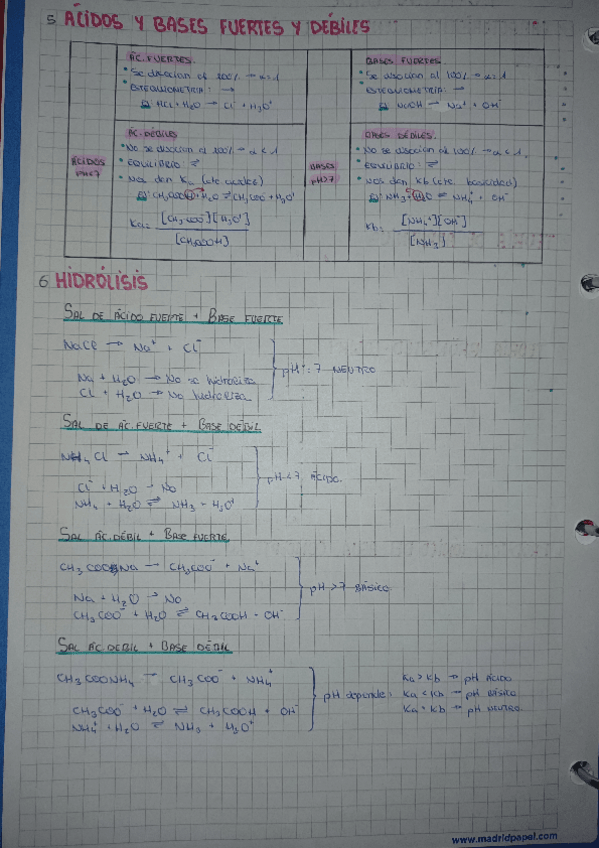 5 ÁCIDOS Y BASES FUERTES Y DÉBILES
ÁCIDOS
PH<7
ÁC. FUERTES
• Se disocian al 100% → α = 1
• ESTEQUIOMETRÍA: →
HCl + H₂O → Cl⁻ + H₃O⁺
ÁC. DÉBILES
• No se disocian al 100% → α < 1
• EQUILIBRIO: ⇌
• Nos den Ka (cte acidez)
CH₃COOH + H₂O ⇌ CH₃COO⁻ + H₃O⁺
Ka = [CH₃COO⁻][H₃O⁺]
[CH₃COOH]
BASES
pH>7
BASES FUERTES
• Se disocian al 100% → α = 1
• ESTEQUIOMETRÍA: →
NaOH → Na⁺ + OH⁻
BASES DÉBILES
• No se disocian al 100% → α < 1
• EQUILIBRIO: ⇌
• Nos den Kb (cte. basicidad)
NH₃ + H₂O ⇌ NH₄⁺ + OH⁻
Kb = [NH₄⁺][OH⁻]
[NH₃]
6 HIDRÓLISIS
SAL DE ÁCIDO FUERTE + BASE FUERTE
NaCl → Na⁺ + Cl⁻
Na + H₂O → No se hidroliza
Cl + H₂O → No hidroliza
pH = 7 NEUTRO
SAL DE AC. FUERTE + BASE DÉBIL
NH₄Cl → NH₄⁺ + Cl⁻
Cl⁻ + H₂O → No
NH₄ + H₂O ⇌ NH₃ + H₃O⁺
pH < 7 ÁCIDO
SAL ÁC. DÉBIL + BASE FUERTE
CH₃COONa → CH₃COO⁻ + Na⁺
Na + H₂O → No
CH₃COO⁻ + H₂O ⇌ CH₃COOH + OH⁻
pH > 7 BÁSICO
SAL ÁC. DÉBIL + BASE DÉBIL
CH₃COONH₄ → CH₃COO⁻ + NH₄⁺
CH₃COO⁻ + H₂O ⇌ CH₃COOH + OH⁻
NH₄⁺ + H₂O ⇌ NH₃ + H₃O⁺
pH depende:
Ka > Kb → pH ácido
Ka < Kb → pH básico
Ka = Kb → pH neutro
www.madridpapel.com